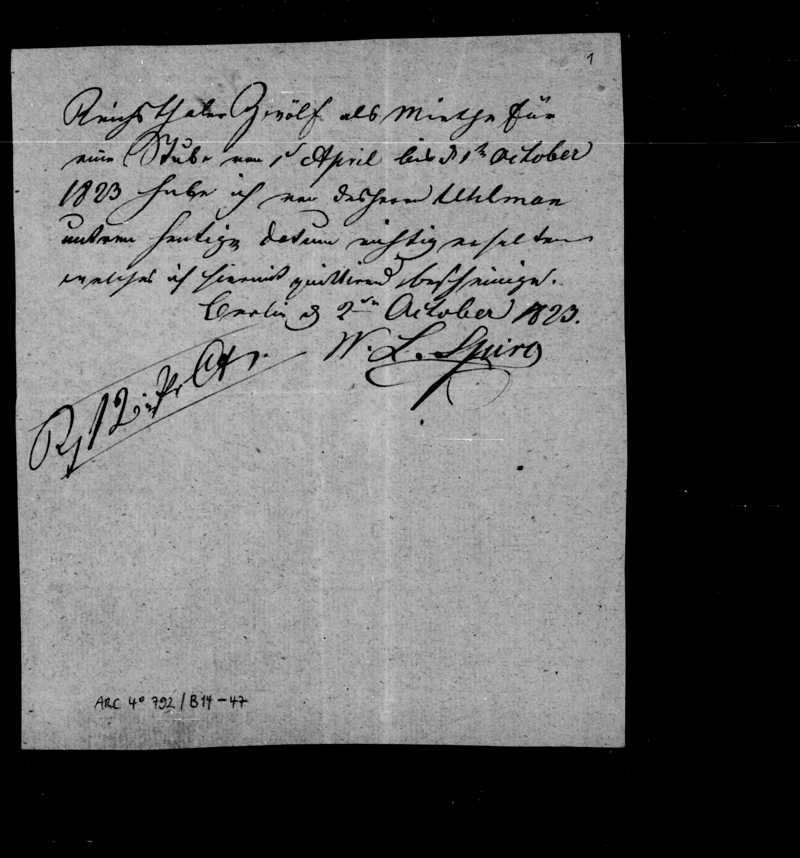 1
Reichsthaler Zwölf als Miethe für
eine Stube von 1t April bis d 1tn October
1823 habe ich von Uhlman
unterm heutigen datum richtig erhalten
welches ich hiermit quittirend bescheinige.
Berlin d 2tn October 1823.
W. L. Spiro
12
ARC 4° 792 / B14-47